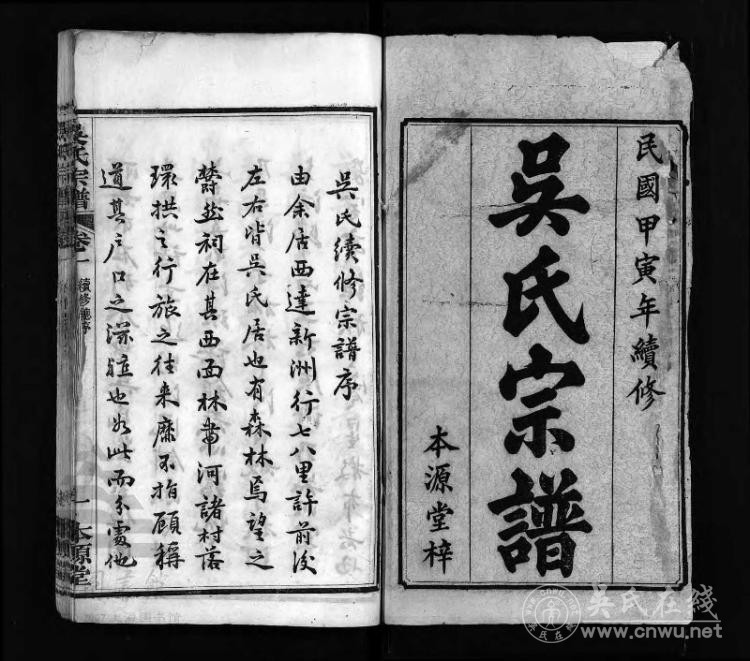 民國甲寅年續修
吳氏宗譜
本源堂梓
吳氏續修宗譜序
由余居西達新洲行七八里許前後
左右皆吳氏居也有森林焉望之
蔚然祠在其西面林帶河諸村落
環拱之行旅之往來靡不指顧稱
道其戶口之深殖也如此而分處他
吳氏宗譜
卷一
續修譜序
一
本源堂
吳氏在线
www.cnwu.net